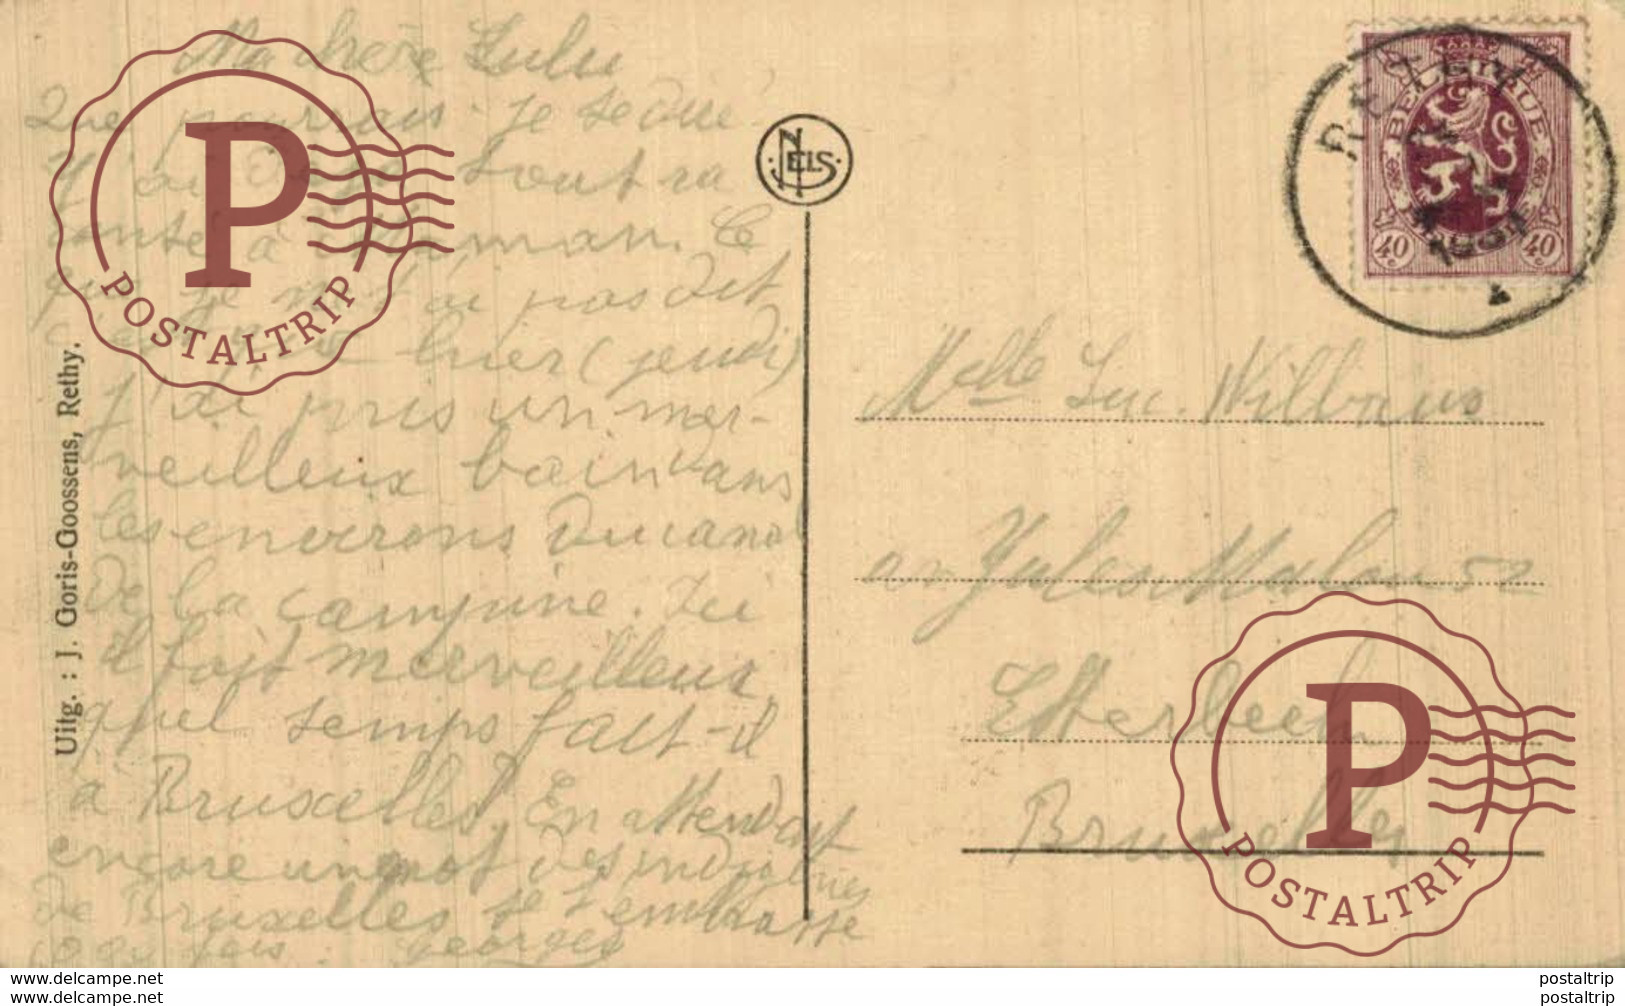 Ma chère Lulu
Que pourrais-je te dire.
J'ai tout ra
conté à maman. Ce
que je n't'ai pas dit
c'est hier (jeudi)
j'ai pris un mer-
veilleux bain dans
les environs du canal
De la campine. Ici
il fait merveilleux,
quel temps fait-il
à Bruxelles? En attendant
encore un mot des indigènes
de Bruxelles je t'embrasse
fois. Georges
Uitg. : J. Goris-Goossens, Rethy.
NELS
RETHY
BELGIQUE
40c 40c
Melle Luc. Wilbaus
av Jules Malou 52
Etterbeek
Bruxelles
P
POSTALTRIP
P
POSTALTRIP
postaltrip.com
postaltrip.com
postaltrip
postaltrip